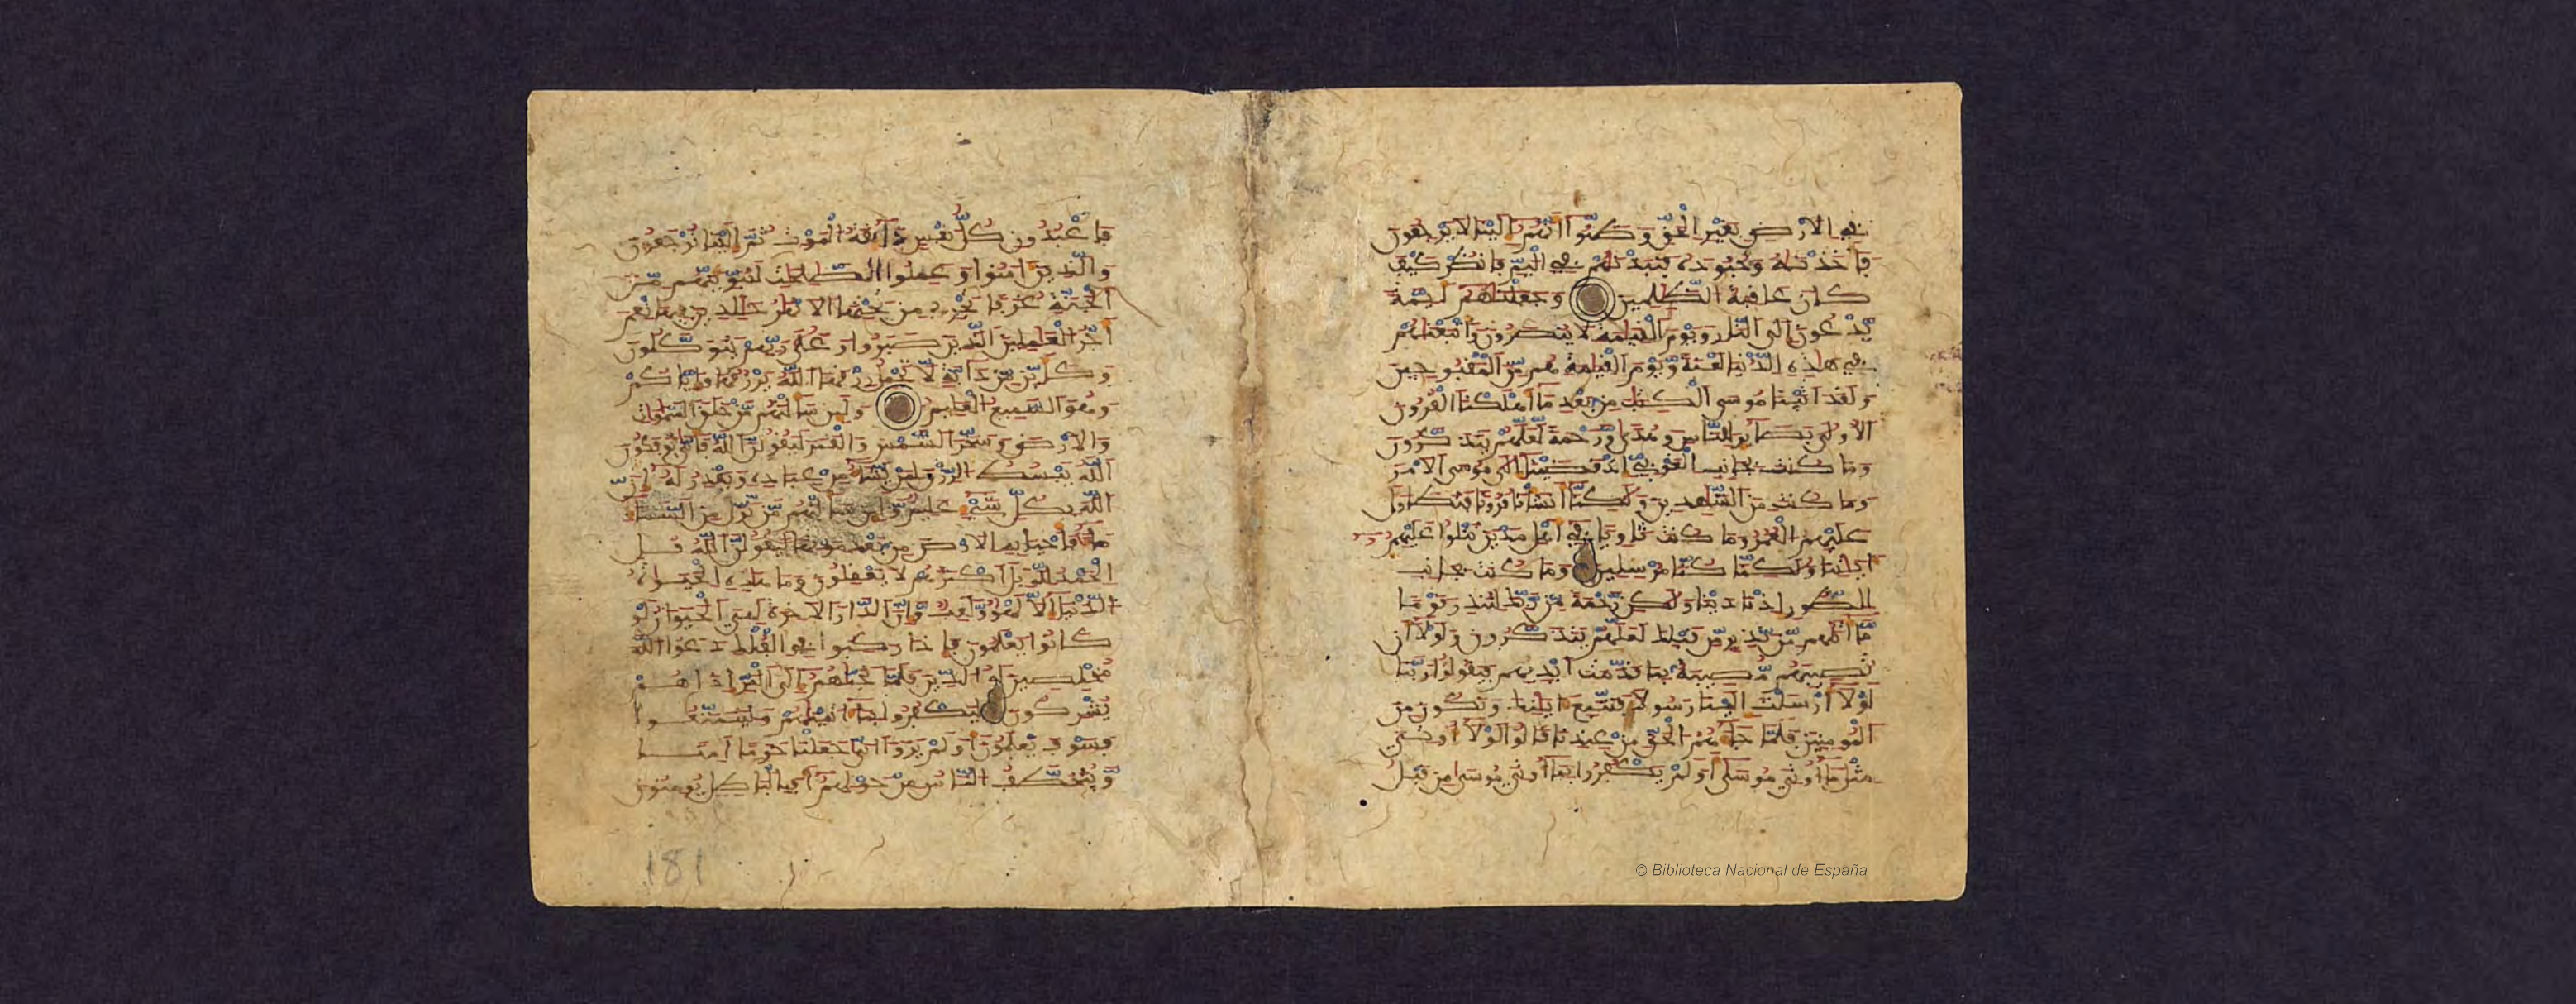 في الارض بغير الحق وظنوا انهم الينا لا يرجعون
فاخذنه وجنوده فنبذنهم في اليم فانظر كيف
كان عاقبة الظلمين وجعلناهم ايمة
يدعون الى النار ويوم القيامة لا ينصرون واتبعناهم
في هاذه الدنيا لعنة ويوم القيامة هم من المقبوحين
ولقد اتينا موسى الكتاب من بعد ما اهلكنا القرون
الاولى بصاير للناس وهدى ورحمة لعلهم يتذكرون
وما كنت بجانب الغربي اذ قضينا الى موسى الامر
وما كنت من الشاهدين ولاكنا انشانا قرونا فتطاول
عليهم العمر وما كنت ثاويا في اهل مدين تتلوا عليهم
اياتنا ولكنا كنا مرسلين وما كنت بجانب
الطور اذ نادينا ولاكن رحمة من ربك لتنذر قوما
ما اتاهم من نذير من قبلك لعلهم يتذكرون ولولا ان
تصيبهم مصيبة بما قدمت ايديهم فيقولوا ربنا
لولا ارسلت الينا رسولا فنتبع اياتك ونكون من
المومنين فلما جاهم الحق من عندنا قالوا لولا اوتي
مثل ما اوتي موسى اولم يكفروا بما اوتي موسى من قبل
فاعبدون كل نفس ذايقة الموت ثم الينا ترجعون
والذين امنوا وعملوا الصالحات لنبوينهم من
الجنة غرفا تجري من تحتها الانهار خالدين فيها نعم
اجر العاملين الذين صبروا وعلى ربهم يتوكلون
وكاين من دابة لا تحمل رزقها الله يرزقها واياكم
وهو السميع العليم ولين سالتهم من خلق السموات
والارض وسخر الشمس والقمر ليقولن الله فانى يوفكون
الله يبسط الرزق لمن يشا من عباده ويقدر له ان
الله بكل شي عليم ولين سالتهم من نزل من السما
ما فاحيا به الارض من بعد موتها ليقولن الله قل
الحمد لله بل اكثرهم لا يعقلون وما هاذه الحيوة
الدنيا الا لهو ولعب وان الدار الاخرة لهي الحيوان لو
كانوا يعلمون فاذا ركبوا في الفلك دعوا الله
مخلصين له الدين فلما نجاهم الى البر اذا هم
يشركون ليكفروا بما اتيناهم وليتمتعوا
فسوف يعلمون اولم يروا انا جعلنا حرما امنا
ويتخطف الناس من حولهم افبالباطل يومنون
181
© Biblioteca Nacional de España